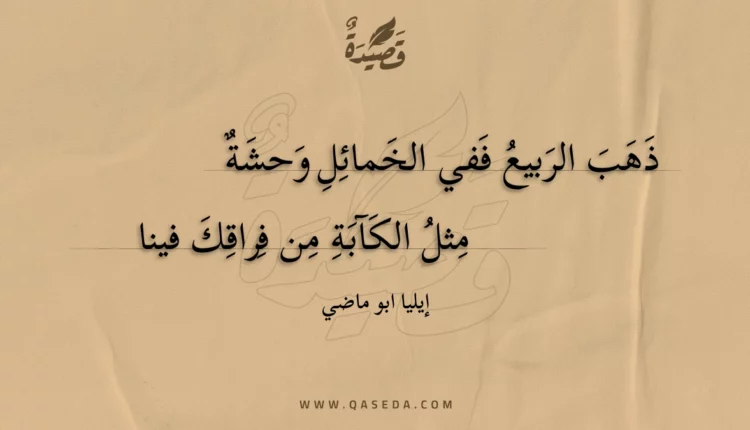 قَصِيْدَةٌ
ذَهَبَ الرَبيعُ فَفي الخَمائِلِ وَحشَةٌ
مِثلُ الكَآبَةِ مِن فِراقِكَ فينا
إيليا ابو ماضي
WWW.QASEDA.COM